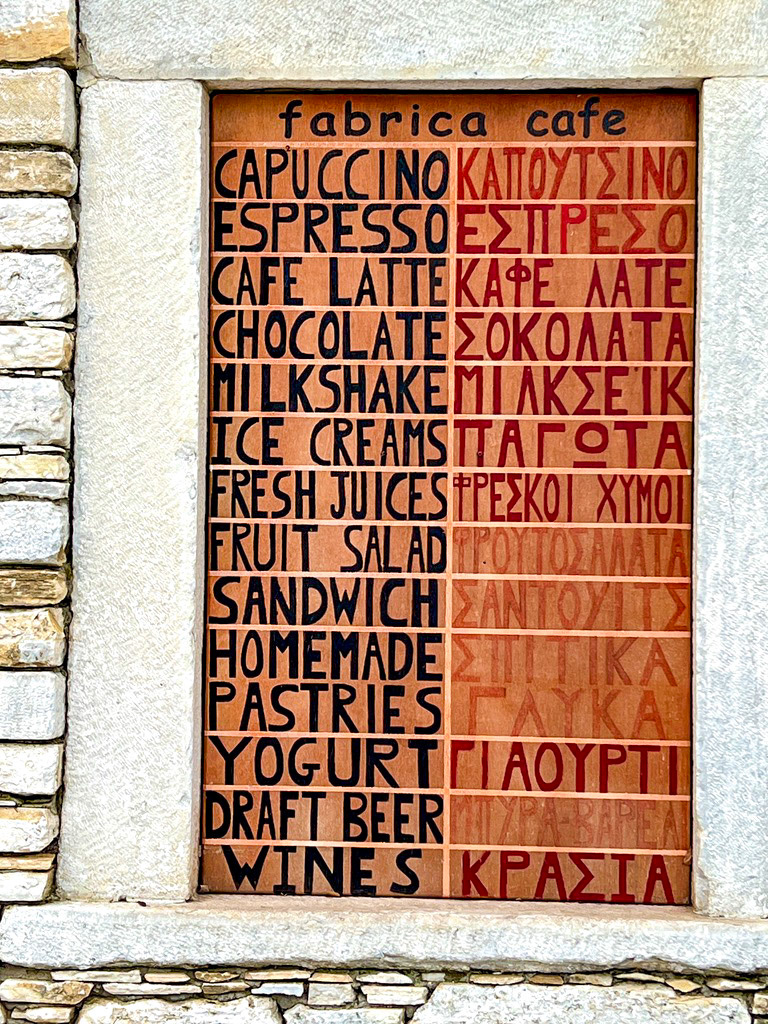 fabrica cafe
CAPUCCINO ΚΑΠΟΥΤΣΙΝΟ
ESPRESSO ΕΣΠΡΕΣΟ
CAFE LATTE ΚΑΦΕ ΛΑΤΕ
CHOCOLATE ΣΟΚΟΛΑΤΑ
MILKSHAKE ΜΙΛΚΣΕΙΚ
ICE CREAMS ΠΑΓΩΤΑ
FRESH JUICES ΦΡΕΣΚΟΙ ΧΥΜΟΙ
FRUIT SALAD ΦΡΟΥΤΟΣΑΛΑΤΑ
SANDWICH ΣΑΝΤΟΥΙΤΣ
HOMEMADE ΣΠΙΤΙΚΑ
PASTRIES ΓΛΥΚΑ
YOGURT ΓΙΑΟΥΡΤΙ
DRAFT BEER ΜΠΥΡΑ-ΒΑΡΕΛ
WINES ΚΡΑΣΙΑ